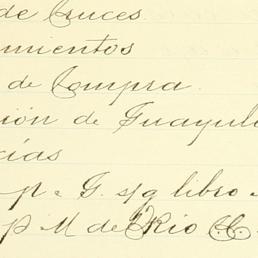 de Cruces.
mientos
de Compra.
ción de Guayul
cías
p a G. s/g libro
p M del Rio C.